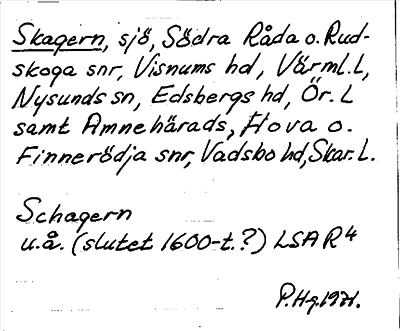 Skagern, sjö, Södra Råda o. Rud-
skoga snr, Visnums hd, Värml. L,
Nysunds sn, Edsbergs hd, Ör. L
samt Amnehärads, Hova o.
Finnerödja snr, Vadsbo hd, Skar. L.
Schagern
u.å. (slutet 1600-t.?) LSA R4
P.Hg. 1971.